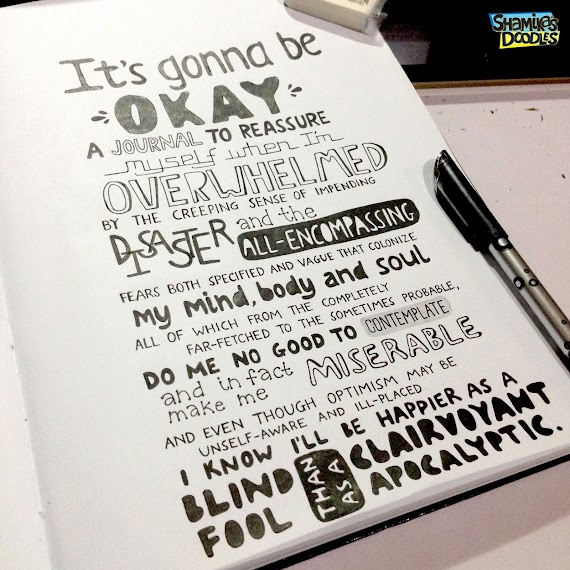 It's gonna be
OKAY
A JOURNAL TO REASSURE
myself when I'm
OVERWHELMED
BY THE CREEPING SENSE OF IMPENDING
DISASTER and the ALL-ENCOMPASSING
FEARS BOTH SPECIFIED AND VAGUE THAT COLONIZE
my mind, body and soul
ALL OF WHICH FROM THE COMPLETELY
FAR-FETCHED TO THE SOMETIMES PROBABLE,
DO ME NO GOOD TO CONTEMPLATE
and in fact
make me MISERABLE
AND EVEN THOUGH OPTIMISM MAY BE
UNSELF-AWARE AND ILL-PLACED
I KNOW I'LL BE HAPPIER AS A
BLIND FOOL
THAN AS A
CLAIRVOYANT
APOCALYPTIC.
SHAMIKA'S
DOODLES